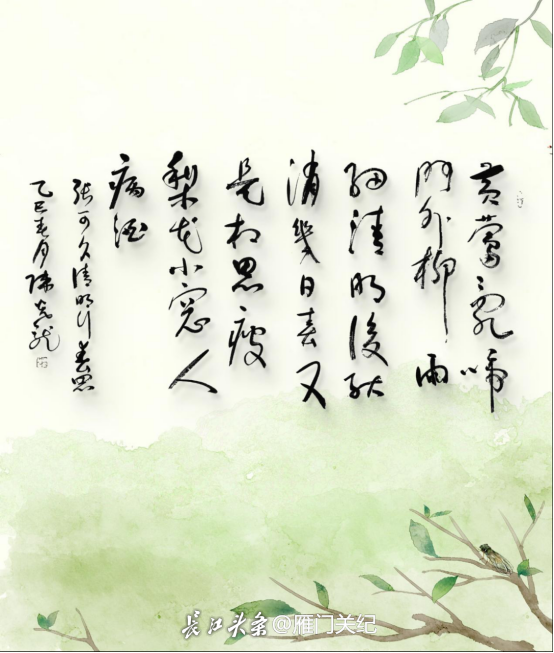 黄鶯乱啼
门外柳雨
细清明後能
消幾日春又
是相思瘦
梨花小窗人
病酒
张可久清明引春思
乙巳春月陈
长江头条@雁门关纪